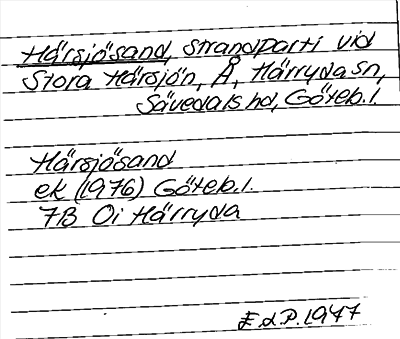 Härsjösand, strandparti vid
Stora Härsjön, Å, Härryda sn,
Sävedals hd, Göteb. l.
Härsjösand
ek (1976) Göteb. l.
7B Oi Härryda
E d.P. 1977